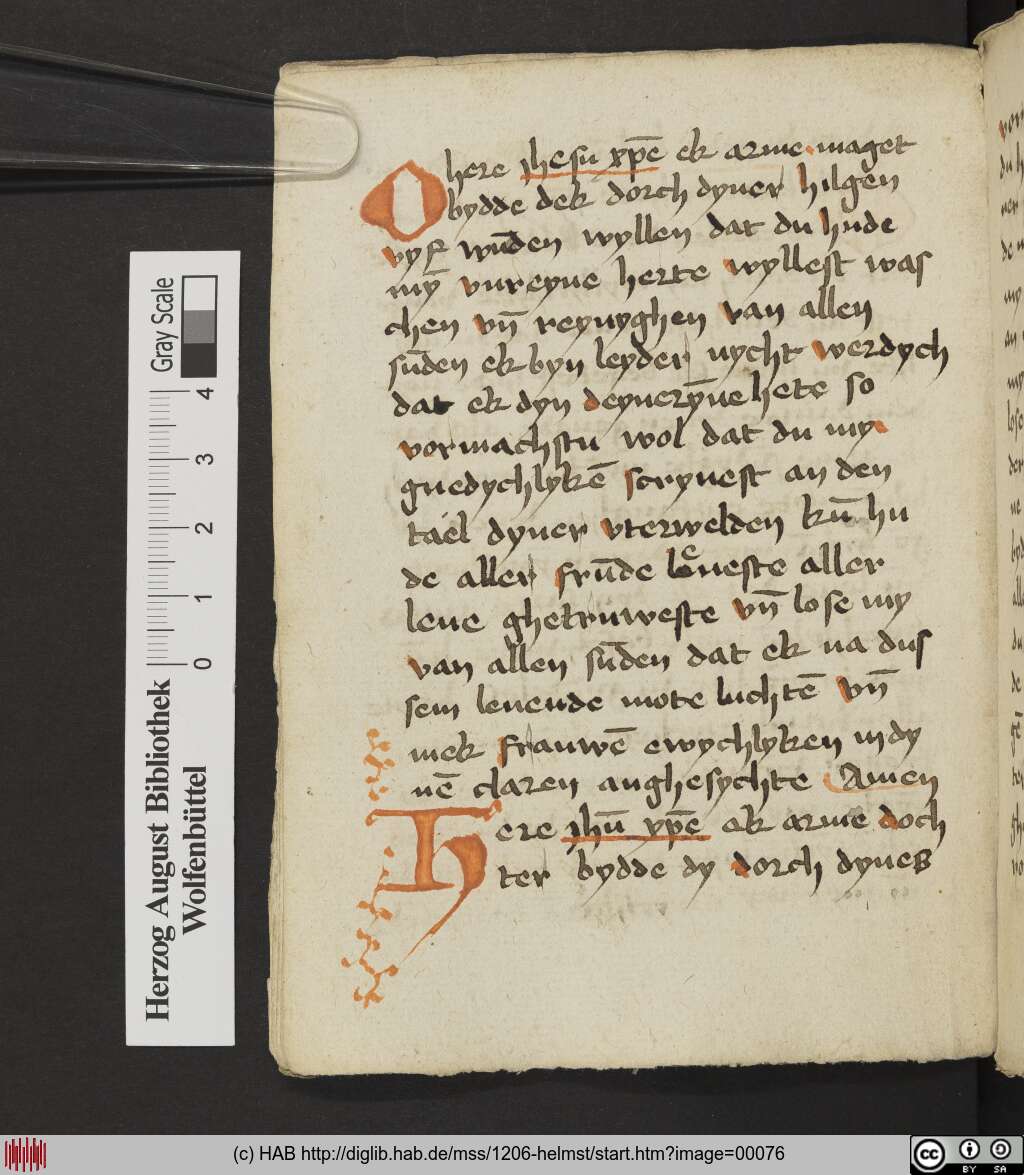 O here jhesu xpē ek arme maget
bydde dek dorch dyner hilgen
vyf wūden wyllen dat du hude
mȳ vnreyne herte wyllest was
chen vn̄ reynyghen van allen
sūden ek byn leyder nycht werdych
dat ek dyn deynerȳne hete so
vormachstu wol dat du my
gnedychlykē scryuest an den
tael dyner vterwelden kū hu
de aller frūde leueste aller
leue ghetruweste vn̄ lose my
van allen sūden dat ek na dus
sem leuende mote luchtē vn̄
mek frauwē ewychlyken in dy
nē claren anghesychte Amen
Here jhū xpē ek arme doch
ter bydde dy dorch dynes
Gray Scale
0 1 2 3 4
Herzog August Bibliothek
Wolfenbüttel
(c) HAB http://diglib.hab.de/mss/1206-helmst/start.htm?image=00076
cc BY SA